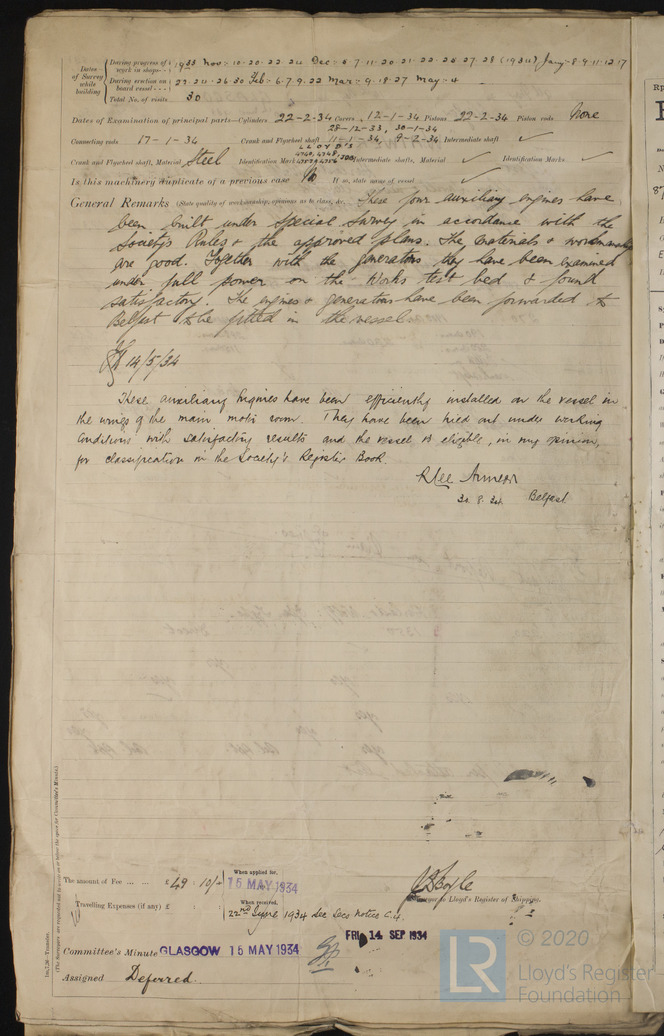 Dates of Survey while building
During progress of work in shops - - 1933 Nov: 10. 20. 22. 24 Dec: 6. 7. 11. 20. 21. 22. 26. 27. 28 (1934) Jany. 8. 9. 11. 12. 17
During erection on board vessel - - - 23. 24. 26. 30 Feb: 6. 7. 9. 22 Mar: 9. 18. 27 May: 4
Total No. of visits 30
Dates of Examination of principal parts—Cylinders 22-2-34 Covers 12-1-34 Pistons 22-2-34 Piston rods None
28-12-33, 30-1-34
Connecting rods 17-1-34 Crank and Flywheel shaft 11-1-34, 9-2-34 Intermediate shaft ✓
LLOYD'S
Crank and Flywheel shaft, Material Steel Identification Mark Intermediate shafts, Material ✓ Identification Marks ✓
Is this machinery duplicate of a previous case No If so, state name of vessel ✓
General Remarks (State quality of workmanship, opinions as to class, &c. These four auxiliary engines have
been built under Special Survey in accordance with the
Society's Rules & the approved plans. The materials & workmanship
are good. Together with the generators they have been examined
under full power on the Works test bed & found
satisfactory. The engines & generators have been forwarded to
Belfast to be fitted in the vessel.
14/5/34
These auxiliary Engines have been efficiently installed on the vessel in
the wings of the main motor room. They have been tried out under working
conditions with satisfactory results and the vessel is eligible, in my opinion,
for classification in the Society's Register Book.
R Lee
30. 8. 34 Belfast
(The Surveyors are requested not to write on or below the space for Committee's Minute.)
The amount of Fee ... ... £ 49 : 10/-
When applied for,
15 MAY 1934
Travelling Expenses (if any) £
When received,
22nd June 1934 See Secs Notice
Surveyor to Lloyd's Register of Shipping.
Committee's Minute GLASGOW 15 MAY 1934
FRI. 14 SEP 1934
Assigned Deferred.
LR
© 2020
Lloyd's Register
Foundation